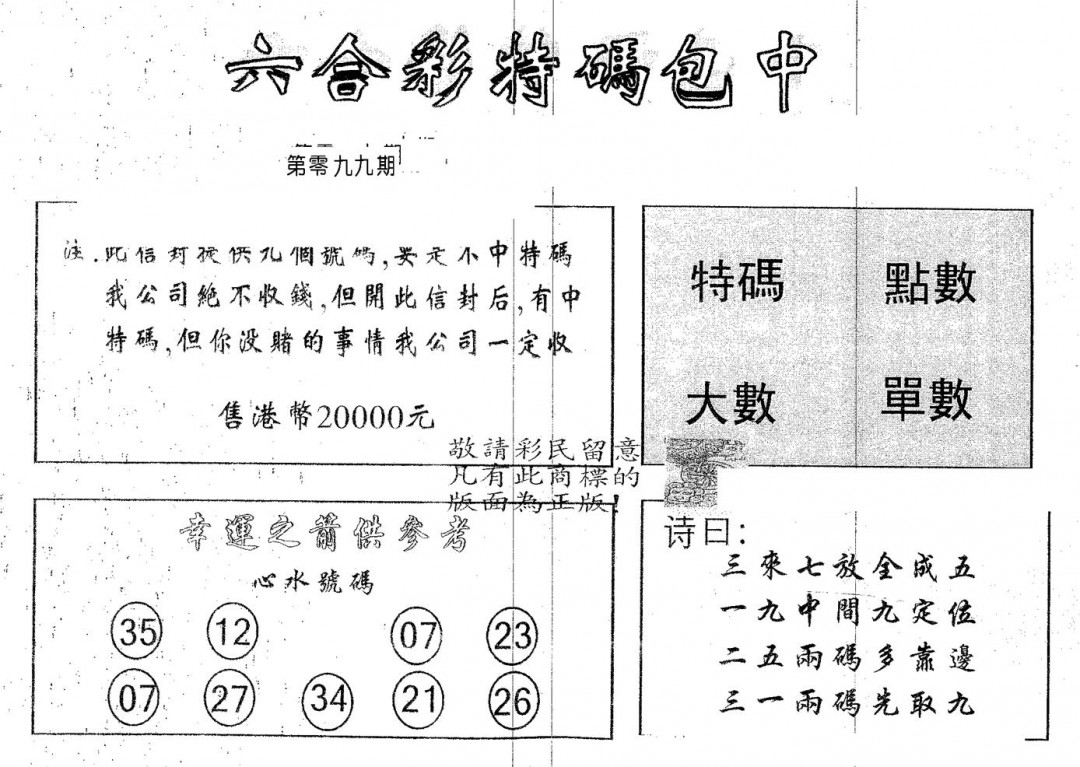 六合彩特碼包中
第零九九期
注.此信封提供九個號碼,要是不中特碼
我公司絕不收錢,但開此信封后,有中
特碼,但你没賭的事情我公司一定收
售港幣20000元
特碼 點數
大數 單數
敬請彩民留意
凡有此商標的
版面為正版!
幸運之箭供參考
心水號碼
35 12 07 23
07 27 34 21 26
诗曰:
三來七放全成五
一九中間九定位
二五兩碼多靠邊
三一兩碼先取九